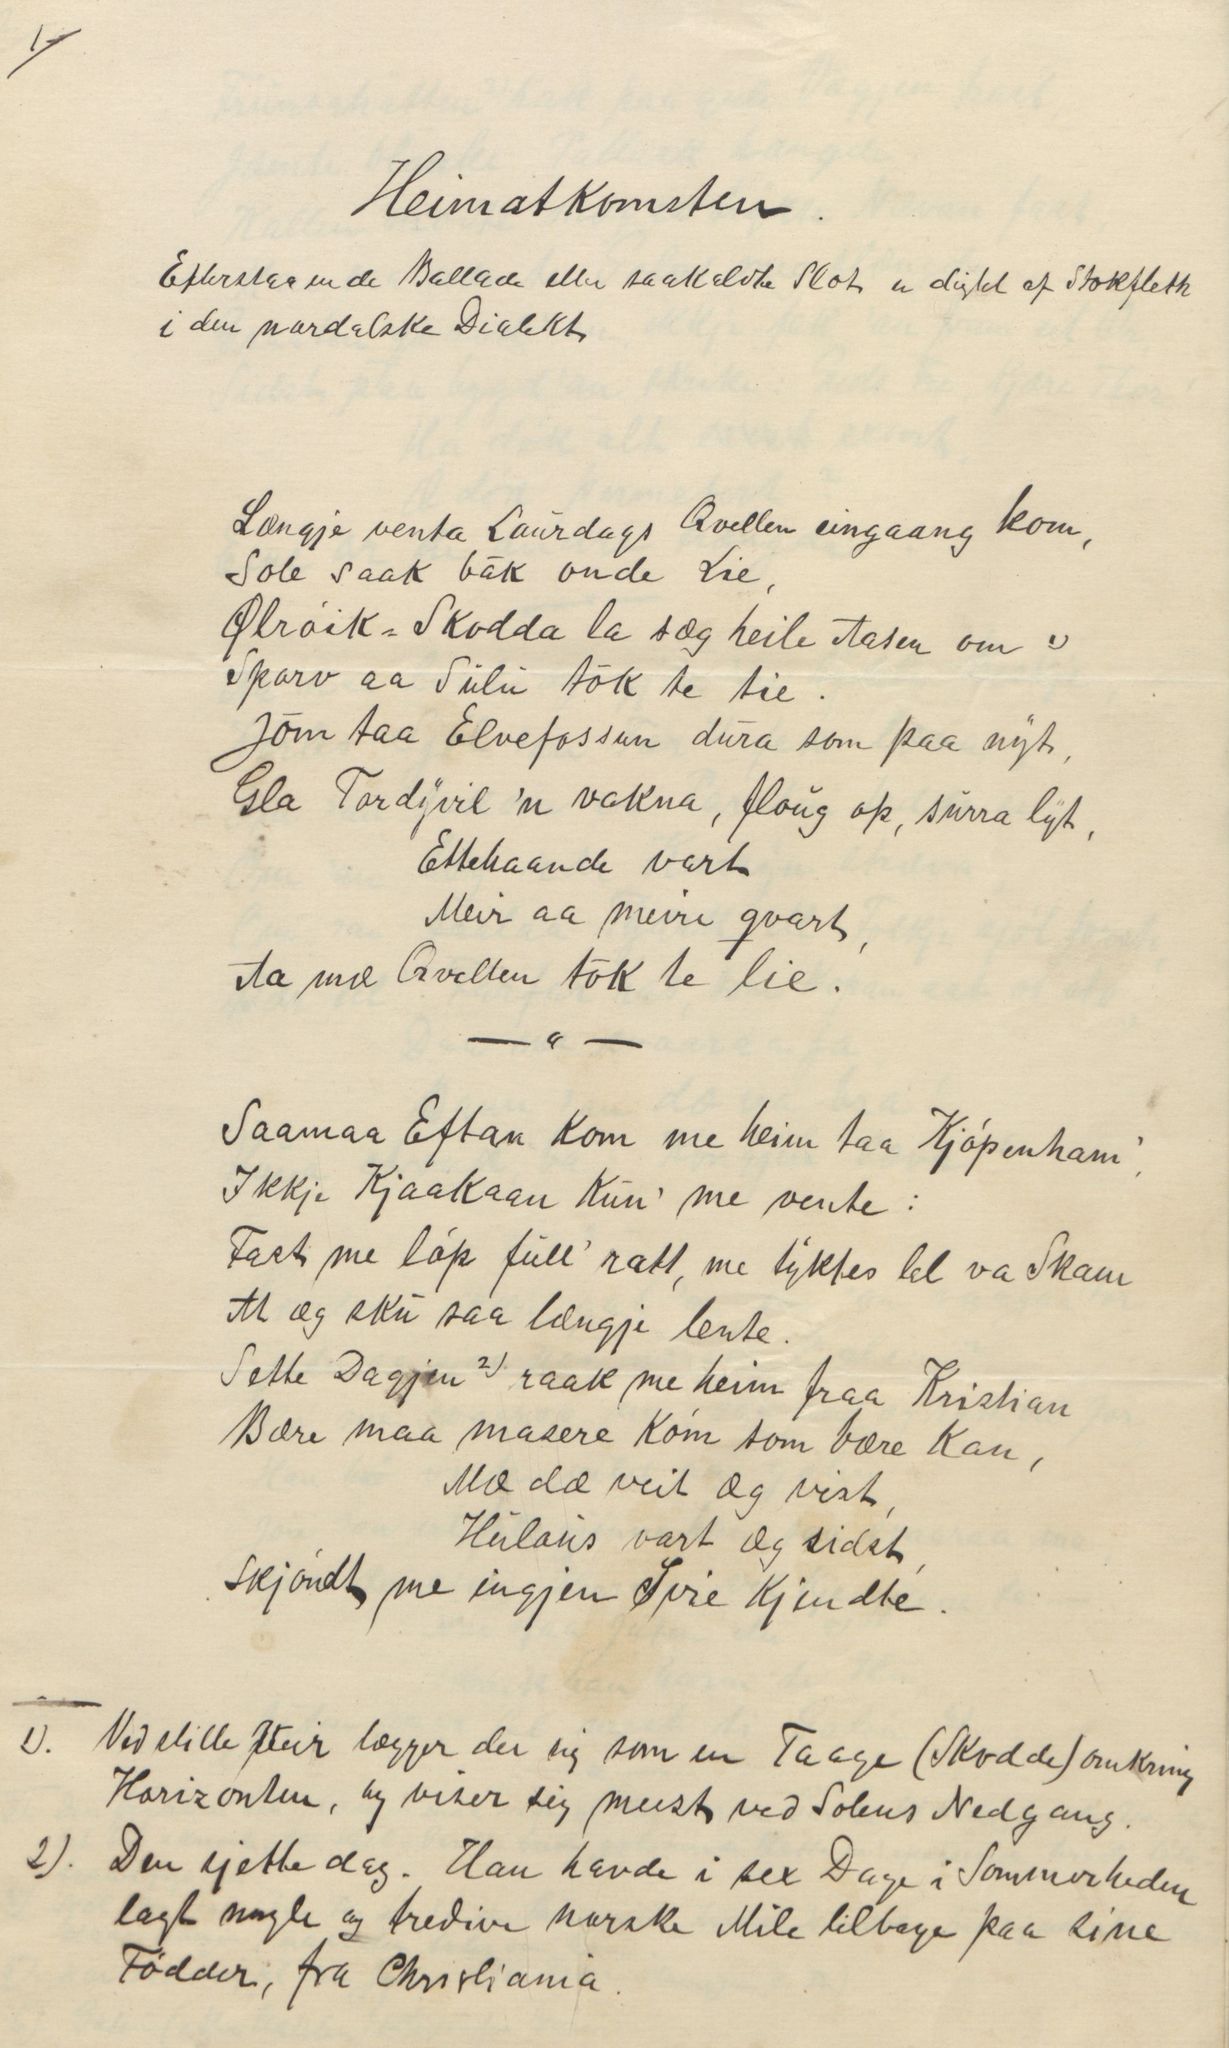 1
Heimatkomsten.
Efterstaaende Ballade eller saakaldte Slot er digtet af Stokfleth
i den nordalske Dialekt
Længje venta Laurdags Qvellen eingaang kom,
Sole saak bak onde Lie,
Ølróik=Skodda la sæg heile Aasen om 1)
Sporv aa Sülü tök te tie.
Jöm taa Elvefossen düra som paa nÿt,
Gla Tordÿvil 'n vakna, floüg op, sürra lÿt,
Ettehaande vart
Meir aa meire qvart,
Aa mæ Qvellen tök te lie.
Saamaa Eftan kom me heim taa Kjópenham',
Ikkje Kjaakaan Kün' me vente:
Fast me lóp füll' ratt, me tÿktes lel va Skam
At æg skü saa længje lente.
Sette Dagjen 2) raak me heim fraa Kristian
Bære maa masere Kóm som bære Kan,
Mæ dæ veit æg vist,
Hülaüs vart æg sidst,
Skjóndt me ingjen Ivie Kjendte.
1). Ved stille Veir lægger der sig som en Taage (Skodde) omkring
Horizonten, og viser sig meest ved Solens Nedgang.
2). Den sjette dag. Han havde i sex Dage i Sommerheden
lagt nogle og tredive norske Mile tilbage paa sine
Födder, fra Christiania.